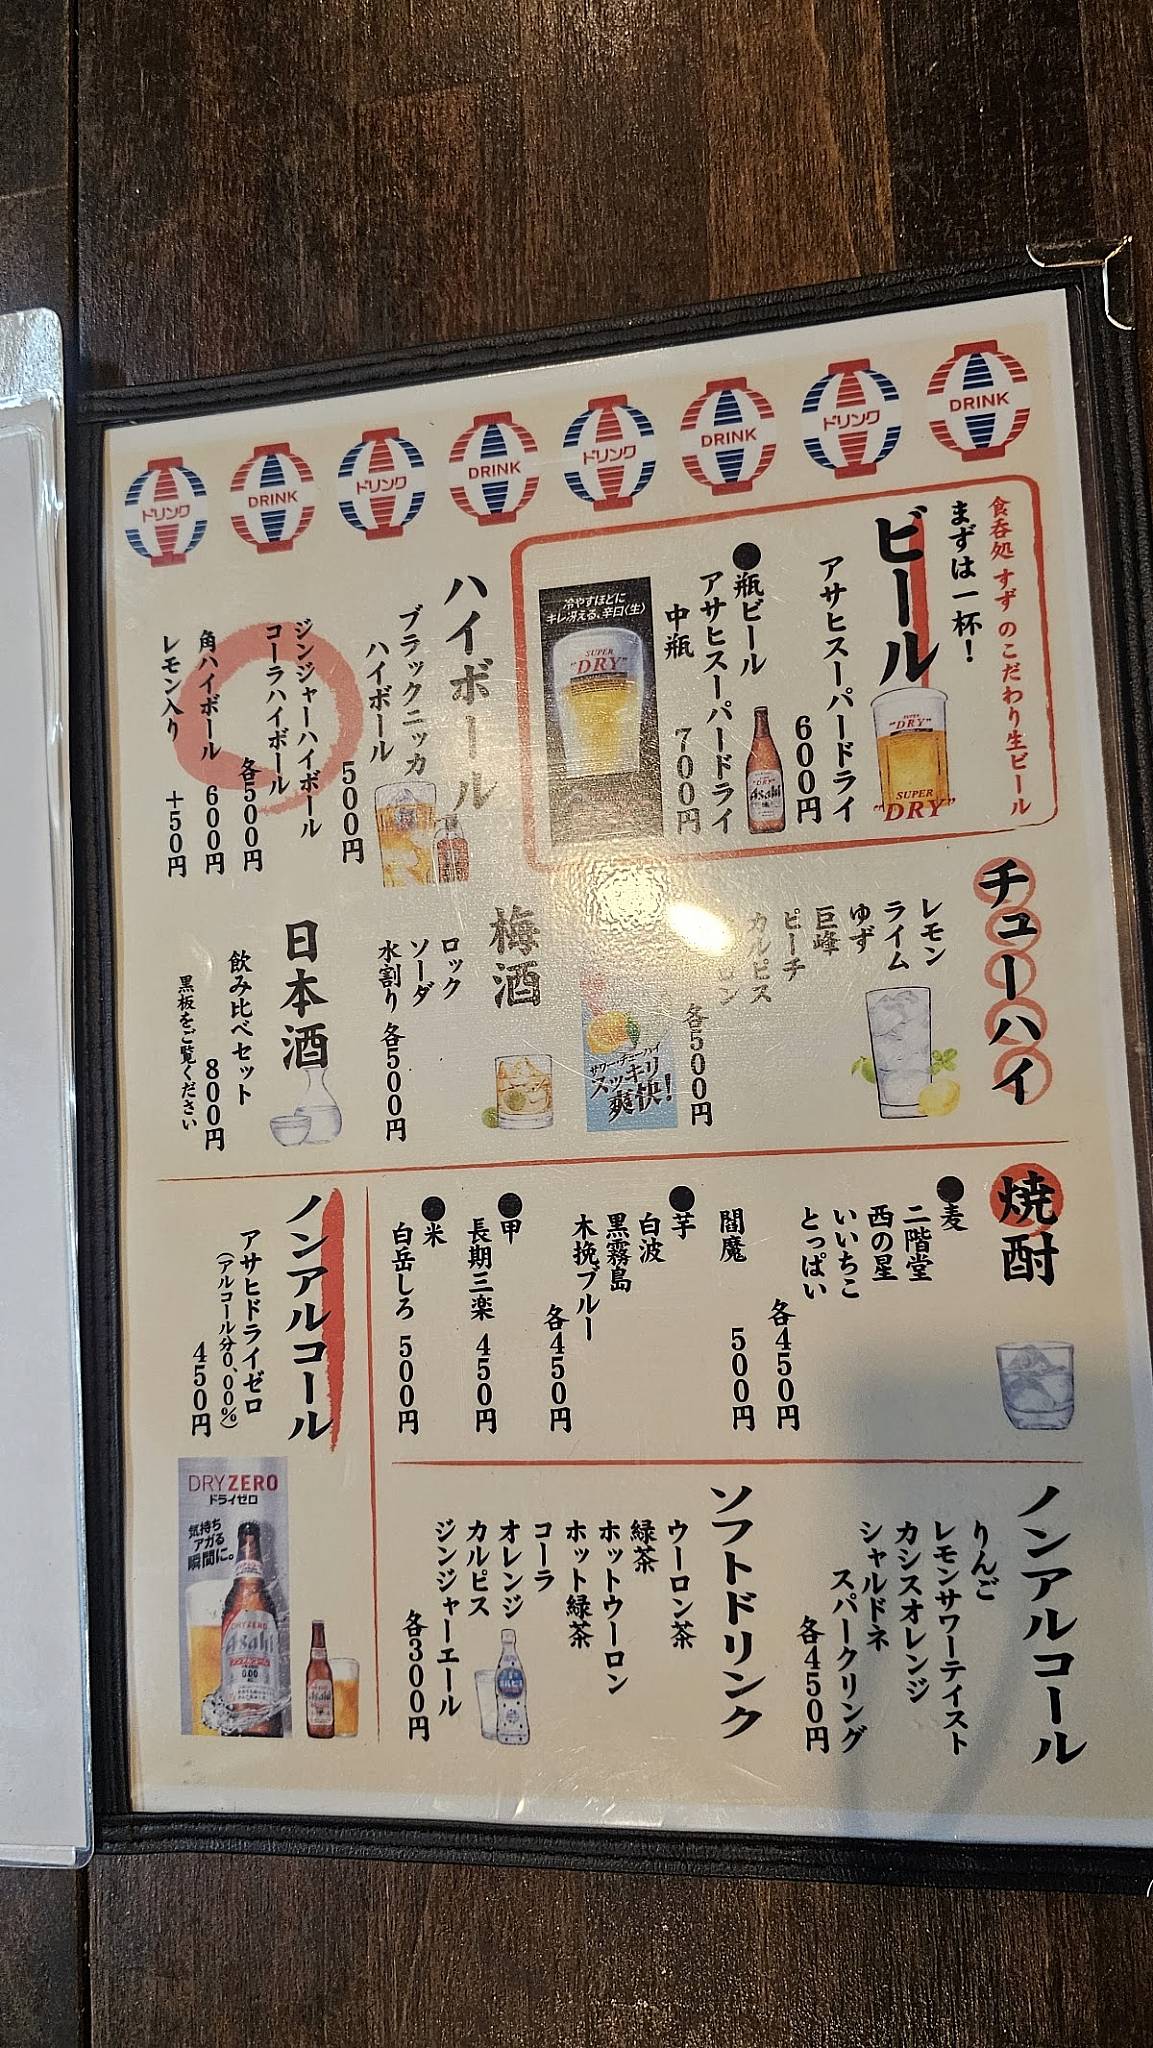 DRINK
ドリンク
DRINK
ドリンク
DRINK
ドリンク
DRINK
ドリンク
食呑処 すず のこだわり生ビール
まずは一杯!
ビール
SUPER
"DRY"
SUPER
"DRY"
アサヒスーパードライ
600円
●瓶ビール
アサヒスーパードライ
中瓶
700円
DRY
Asahi
冷やすほどに
キレ冴える、辛口〈生〉
SUPER
"DRY"
ハイボール
ブラックニッカ
ハイボール
500円
ジンジャーハイボール
コーラハイボール
各500円
角ハイボール 600円
レモン入り +50円
チューハイ
レモン
ライム
ゆず
巨峰
ピーチ
カルピス
各500円
サワー・チューハイ
スッキリ
爽快!
梅酒
ロック
ソーダ
水割り 各500円
日本酒
飲み比べセット
800円
黒板をご覧ください
焼酎
●麦
二階堂
西の星
いいちこ
とっぱい
各450円
閻魔 500円
●芋
白波
黒霧島
木挽ブルー
各450円
●甲
長期三楽 450円
●米
白岳しろ 500円
ノンアルコール
アサヒドライゼロ
(アルコール分0.00%)
450円
DRYZERO
ドライゼロ
気持ち
アガる
瞬間に。
DRYZERO
Asahi
ノンアルコール
0.00
Asahi
ノンアルコール
りんご
レモンサワーテイスト
カシスオレンジ
シャルドネ
スパークリング
各450円
ソフトドリンク
ウーロン茶
緑茶
ホットウーロン
ホット緑茶
コーラ
オレンジ
カルピス
ジンジャーエール
各300円